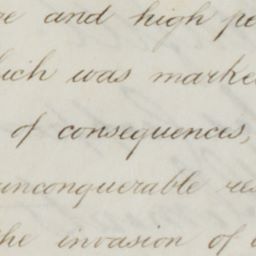 and high
which was
of consequences,
unconquerable
the invasion of